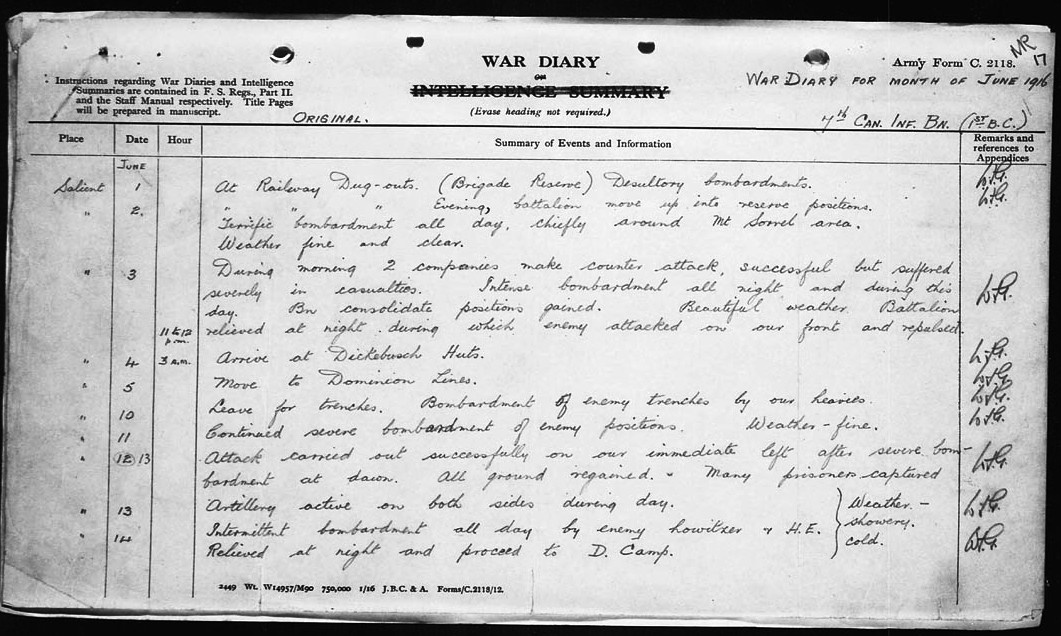 MR
17
WAR DIARY
Army Form C. 2118.
OR
INTELLIGENCE SUMMARY
(Erase heading not required.)
Instructions regarding War Diaries and Intelligence
Summaries are contained in F. S. Regs., Part II.
and the Staff Manual respectively. Title Pages
will be prepared in manuscript.
WAR DIARY FOR MONTH OF JUNE 1916
ORIGINAL.
7th CAN. INF. BN. (1ST B.C.)
Place Date Hour Summary of Events and Information Remarks and references to Appendices
JUNE
Salient 1 At Railway Dug-outs. (Brigade Reserve) Desultory bombardments.
" 2. " " " Evening, battalion move up into reserve positions.
Terrific bombardment all day, chiefly around Mt Sorrel area.
Weather fine and clear.
" 3 During morning 2 companies make counter attack, successful but suffered
severely in casualties. Intense bombardment all night and during this
day. Bn consolidate positions gained. Beautiful weather. Battalion
11 to 12 p.m. relieved at night during which enemy attacked on our front and repulsed.
" 4 3 a.m. Arrive at Dickebusch Huts.
" 5 Move to Dominion Lines.
" 10 Leave for trenches. Bombardment of enemy trenches by our heavies.
" 11 Continued severe bombardment of enemy positions. Weather - fine.
" 12 13 Attack carried out successfully on our immediate left after severe bom-
bardment at dawn. All ground regained. Many prisoners captured
" 13 Artillery active on both sides during day. Weather -
" 14 Intermittent bombardment all day by enemy howitzer & H.E. showery.
Relieved at night and proceed to D. Camp. cold.
2449 Wt. W14957/M90 750,000 1/16 J.B.C. & A. Forms/C.2118/12.